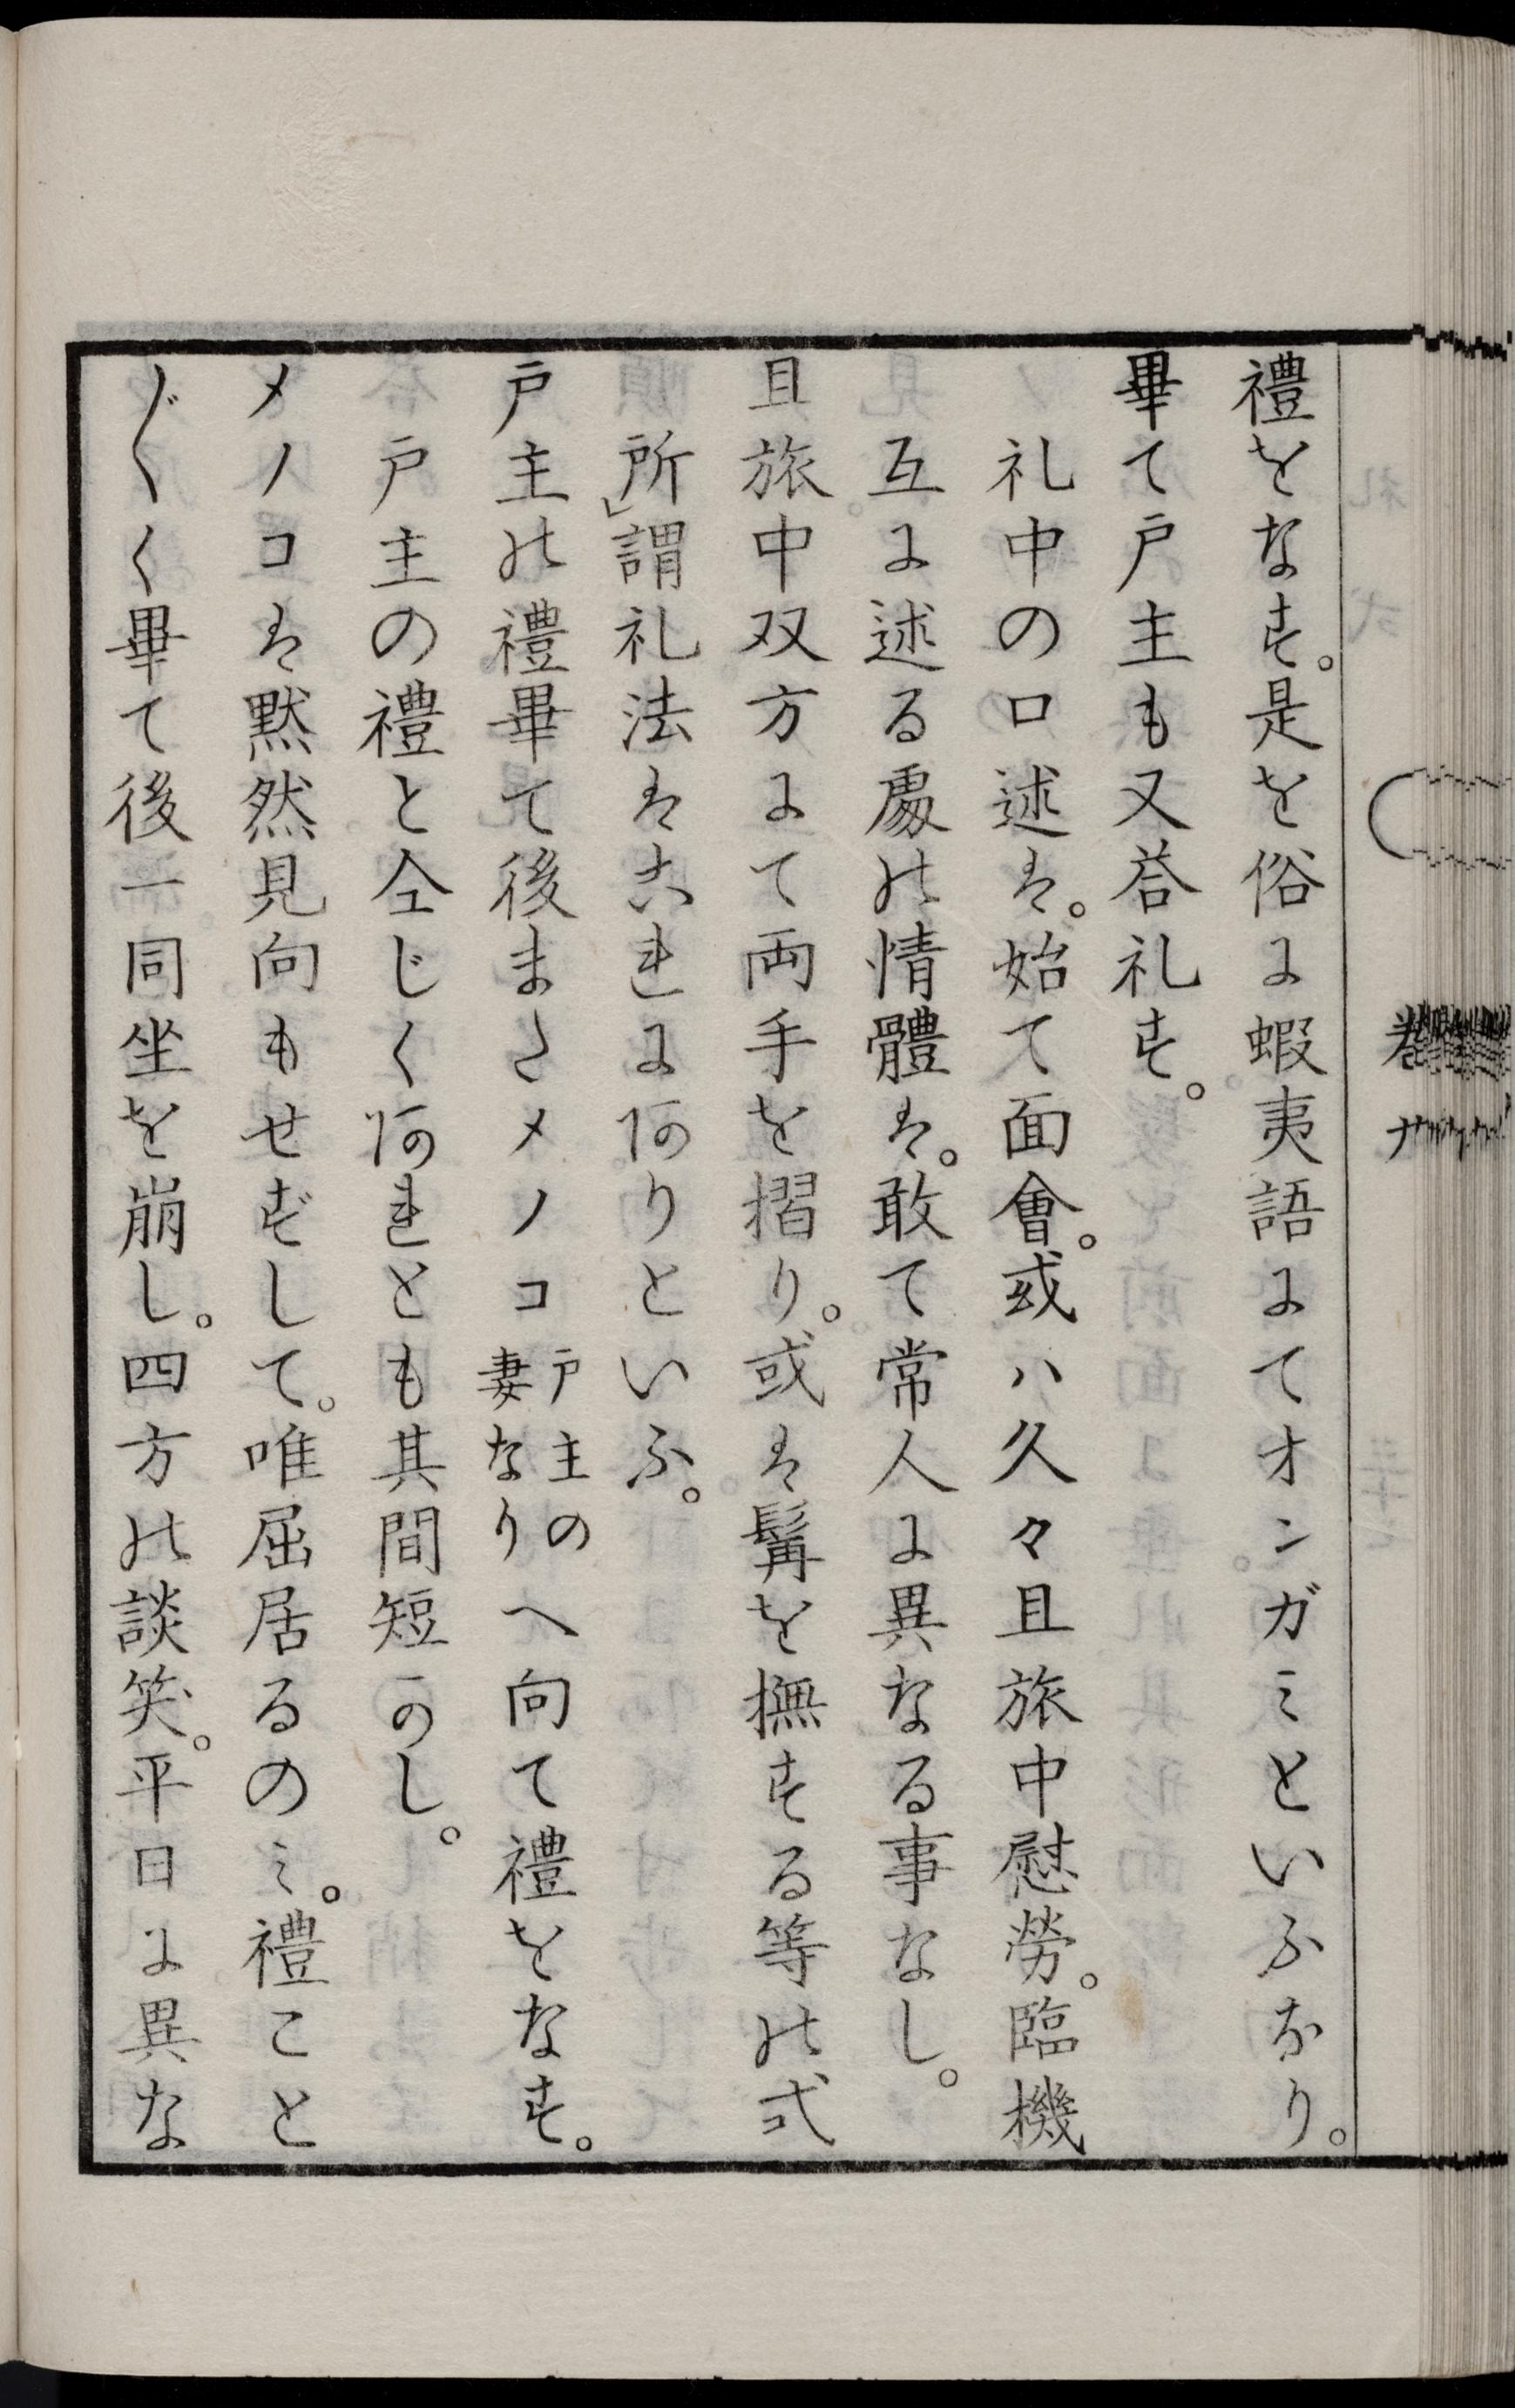 禮をなす。是を俗に蝦夷語にてオンガミといふなり。
畢て戸主も又荅礼す。
礼中の口述は。始て面會。或ハ久々且旅中慰勞。臨機
互に述る處の情體は。敢て常人に異なる事なし。
且旅中双方にて両手を摺り。或は髯を撫する等の式
所謂礼法はこれにありといふ。
戸主の禮畢て後またメノコ戸主の妻なりへ向て禮をなす。
戸主の禮と仝じくあれとも其間短かし。
メノコは黙然見向もせずして。唯屈居るのミ。禮こと
〲く畢て後一同坐を崩し。四方の談笑。平日に異な